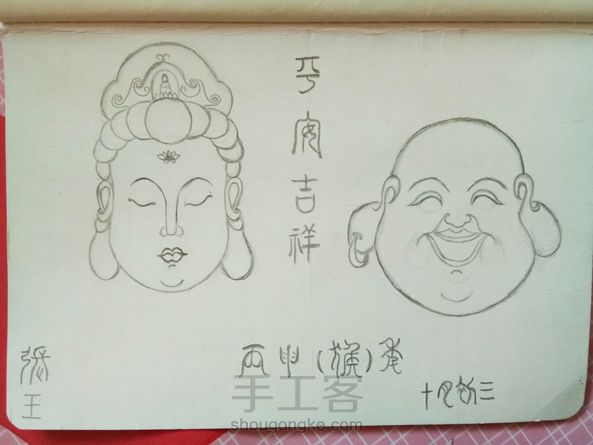 平安吉祥
張王
丙申(猴)年
十月初三
手工客
shougongke.com